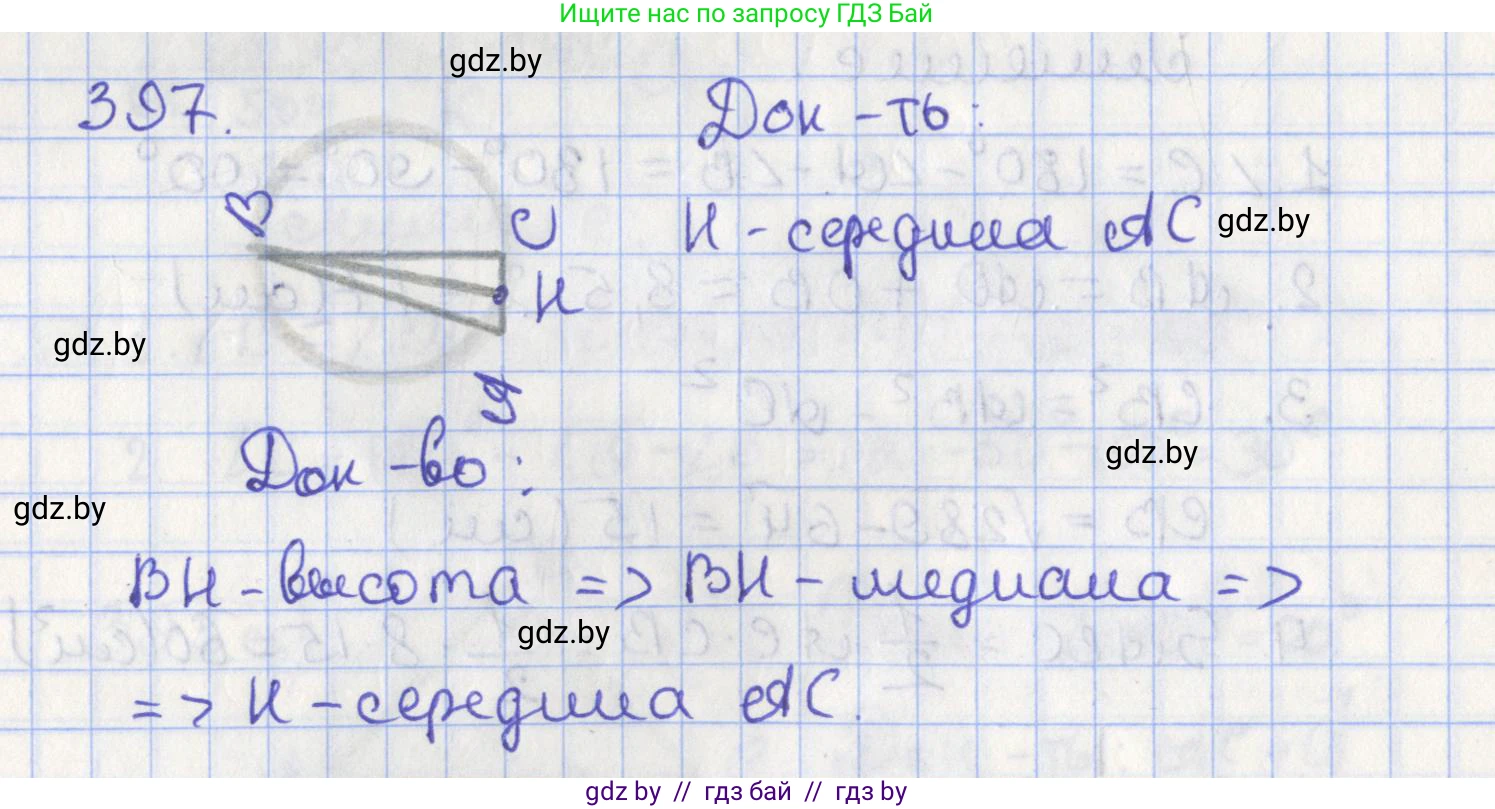 Ищите нас по запросу ГДЗ Бай
gdz.by
397.
Док-ть:
В
С
Н - середина АС
gdz.by
Н
gdz.by
А
Док-во:
gdz.by
gdz.by
ВН - высота => ВН - медиана =>
gdz.by
=> Н - середина АС.
gdz.by // гдз бай // гдз by